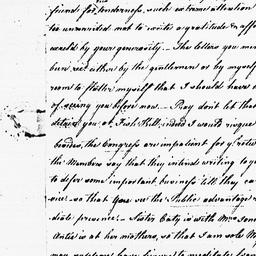 friends for tenderness, such extreme attention
too unrivaled not to excite a gratitude & aff
exceld by your generosity. The letters you men
been recd either by the gentlemen or by myself
room to flatter myself that I should have
of seeing you before now — Pray don't let tha
detain you at Fish Kill, indeed I would risque
besides, the Congress are impatient for yr retu
the Members say that they intend writing tog
to defer some important business till they ca
see. so that you see the Public advantage
diate presence. — Sister Caty is with Mrs
Antis is at her mothers, so that I am sole M